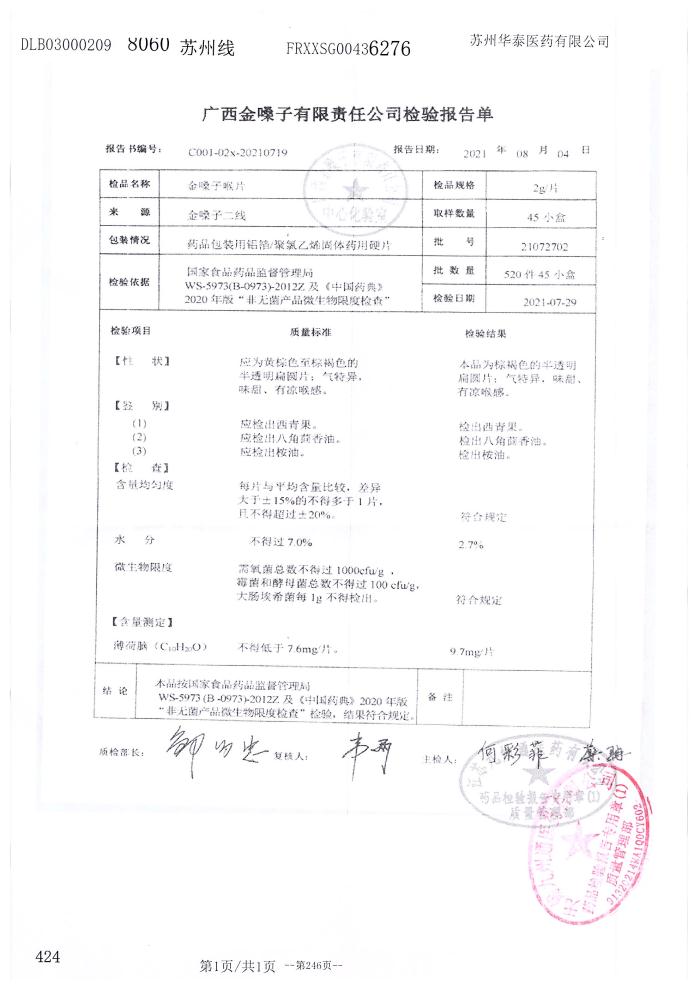 DLB03000209 8060 苏州线 FRXXSG00436276 苏州华泰医药有限公司
广西金嗓子有限责任公司检验报告单
报告书编号： C001-02x-20210719 报告日期： 2021 年 08 月 04 日
检品名称 金嗓子喉片 检品规格 2g/片
来 源 金嗓子二线 取样数量 45 小盒
包装情况 药品包装用铝箔/聚氯乙烯固体药用硬片 批 号 21072702
检验依据 国家食品药品监督管理局
WS-5973(B-0973)-2012Z 及《中国药典》
2020 年版“非无菌产品微生物限度检查”
批 数 量 520 件 45 小盒
检验日期 2021-07-29
检验项目 质量标准 检验结果
【性 状】 应为黄棕色至棕褐色的 本品为棕褐色的半透明
半透明扁圆片；气特异， 扁圆片；气特异，味甜、
味甜、有凉喉感。 有凉喉感。
【鉴 别】
(1) 应检出西青果。 检出西青果。
(2) 应检出八角茴香油。 检出八角茴香油。
(3) 应检出桉油。 检出桉油。
【检 查】
含量均匀度 每片与平均含量比较，差异
大于±15%的不得多于 1 片，
且不得超过±20%。 符合规定
水 分 不得过 7.0% 2.7%
微生物限度 需氧菌总数不得过 1000cfu/g ，
霉菌和酵母菌总数不得过 100 cfu/g，
大肠埃希菌每 1g 不得检出。 符合规定
【含量测定】
薄荷脑（C₁₀H₂₀O） 不得低于 7.6mg/片。 9.7mg/片
结 论 本品按国家食品药品监督管理局
WS-5973 (B -0973)-2012Z 及《中国药典》2020 年版
“非无菌产品微生物限度检查”检验，结果符合规定。
备 注
质检部长： 复核人： 主检人： 何彩菲
中心化验室
药品检验报告专用章(1)
质量管理部
药品检验报告专用章(1)
质量管理部
424
第1页/共1页 --第246页--